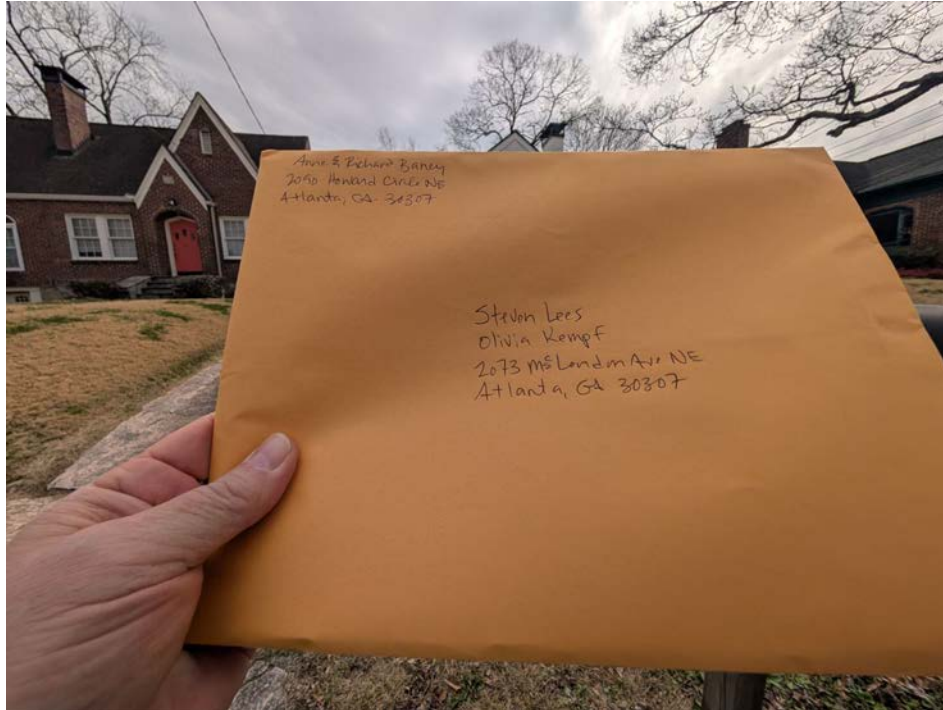 Anne & Richard Baney
2090 Howard Circle NE
Atlanta, GA 30307
Steven Lees
Olivia Kempf
2073 McLendon Ave NE
Atlanta, GA 30307